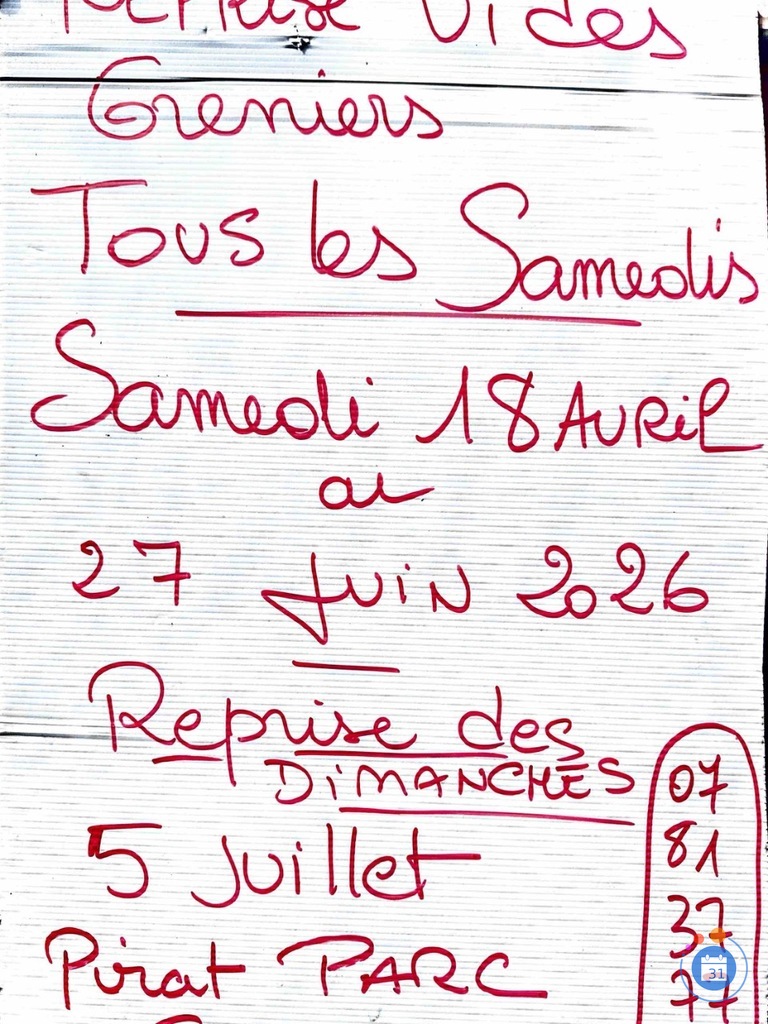 Reprise Vides
Greniers
Tous les Samedis
Samedi 18 AVRIL
au
27 JUIN 2026
Reprise des
DIMANCHES
5 Juillet
Pirat PARC
07
81
37
77
31